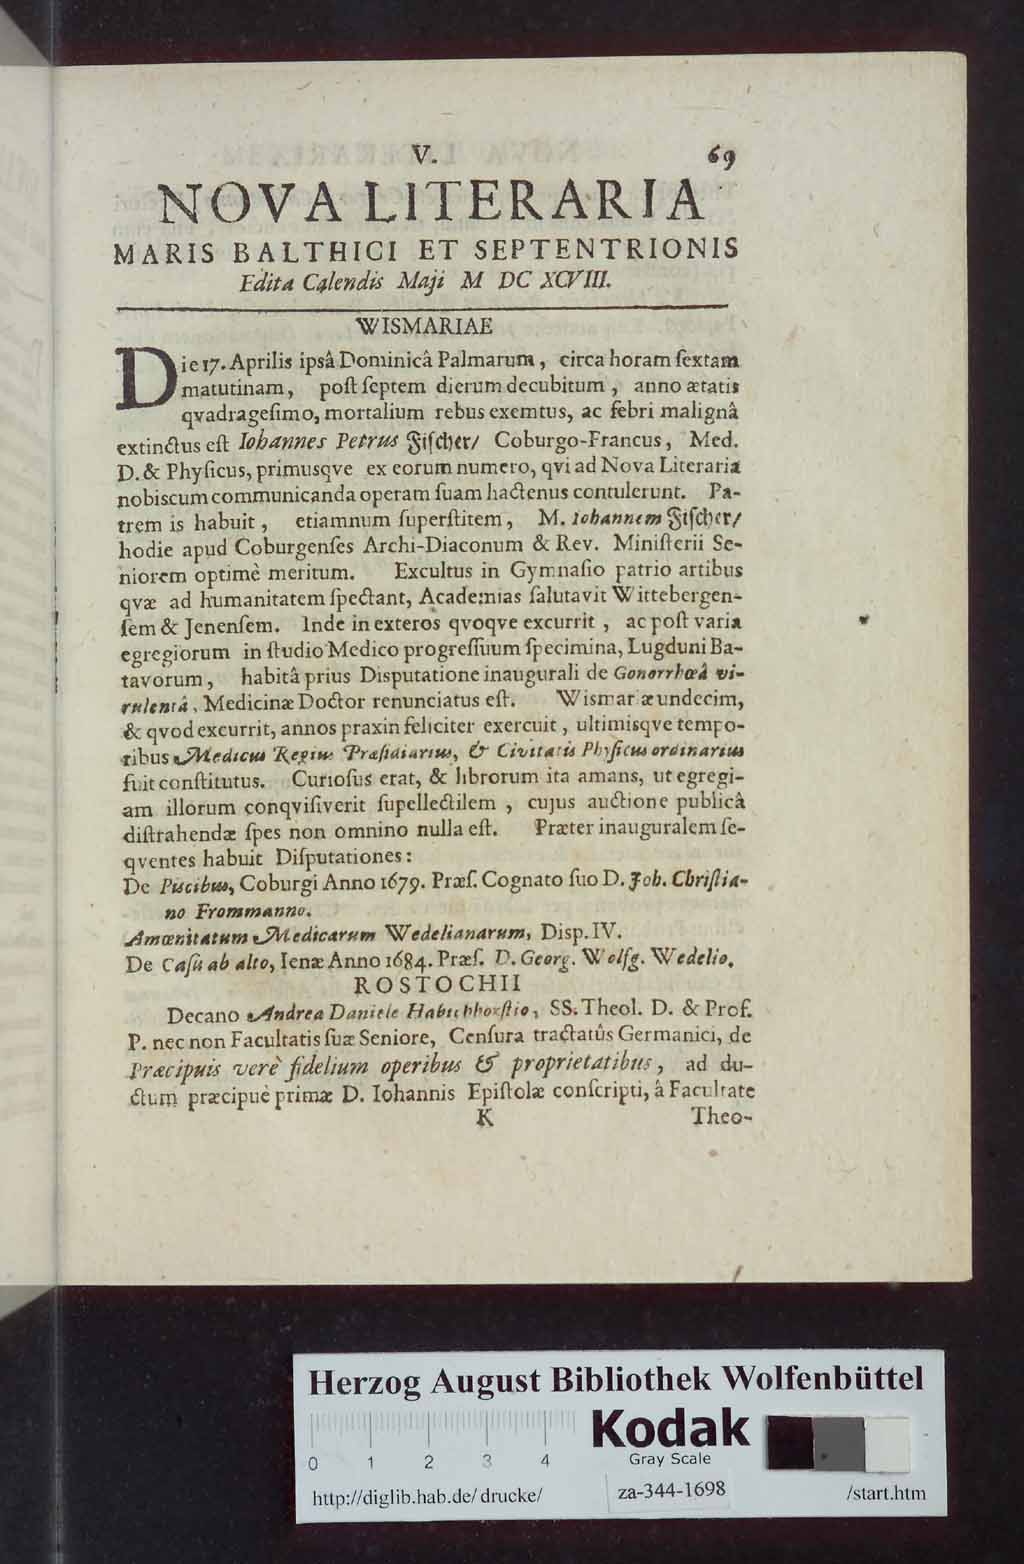 V.
69
NOVA LITERARIA
MARIS BALTHICI ET SEPTENTRIONIS
Edita Calendis Maji M DC XCVIII.
WISMARIAE
Die 17. Aprilis ipsâ Dominicâ Palmarum, circa horam ſextam
matutinam, poſt ſeptem dierum decubitum, anno ætatis
qvadrageſimo, mortalium rebus exemtus, ac febri malignâ
extinctus eſt Iohannes Petrus Fiſcher/ Coburgo-Francus, Med.
D. & Phyſicus, primusqve ex eorum numero, qvi ad Nova Literaria
nobiscum communicanda operam ſuam hactenus contulerunt. Pa-
trem is habuit, etiamnum ſuperſtitem, M. Iohannem Fiſcher/
hodie apud Coburgenſes Archi-Diaconum & Rev. Miniſterii Se-
niorem optimè meritum. Excultus in Gymnaſio patrio artibus
qvæ ad humanitatem ſpectant, Academias ſalutavit Wittebergen-
ſem & Jenenſem. Inde in exteros qvoqve excurrit, ac poſt varia
egregiorum in ſtudio Medico progreſſuum ſpecimina, Lugduni Ba-
tavorum, habitâ prius Disputatione inaugurali de Gonorrhœâ vi-
rulentâ, Medicinæ Doctor renunciatus eſt. Wismariæ undecim,
& qvod excurrit, annos praxin feliciter exercuit, ultimisqve tempo-
ribus Medicus Regius Præſidiarius, & Civitatis Phyſicus ordinarius
fuit conſtitutus. Curioſus erat, & librorum ita amans, ut egregi-
am illorum conqviſiverit ſupellectilem, cujus auctione publicâ
diſtrahendæ ſpes non omnino nulla eſt. Præter inauguralem ſe-
qventes habuit Diſputationes:
De Piscibus, Coburgi Anno 1679. Præſ. Cognato ſuo D. Joh. Chriſtia-
no Frommanno.
Amœnitatum Medicarum Wedelianarum, Disp. IV.
De Caſu ab alto, Ienæ Anno 1684. Præſ. D. Georg. Wolfg. Wedelio.
ROSTOCHII
Decano Andrea Daniele Habichhorſtio, SS. Theol. D. & Prof.
P. nec non Facultatis ſuæ Seniore, Cenſura tractatûs Germanici, de
Præcipuis verè fidelium operibus & proprietatibus, ad du-
ctum præcipuè primæ D. Iohannis Epiſtolæ conſcripti, â Facultate
K
Theo-
Herzog August Bibliothek Wolfenbüttel
Kodak
Gray Scale
0 1 2 3 4
http://diglib.hab.de/drucke/
za-344-1698
/start.htm